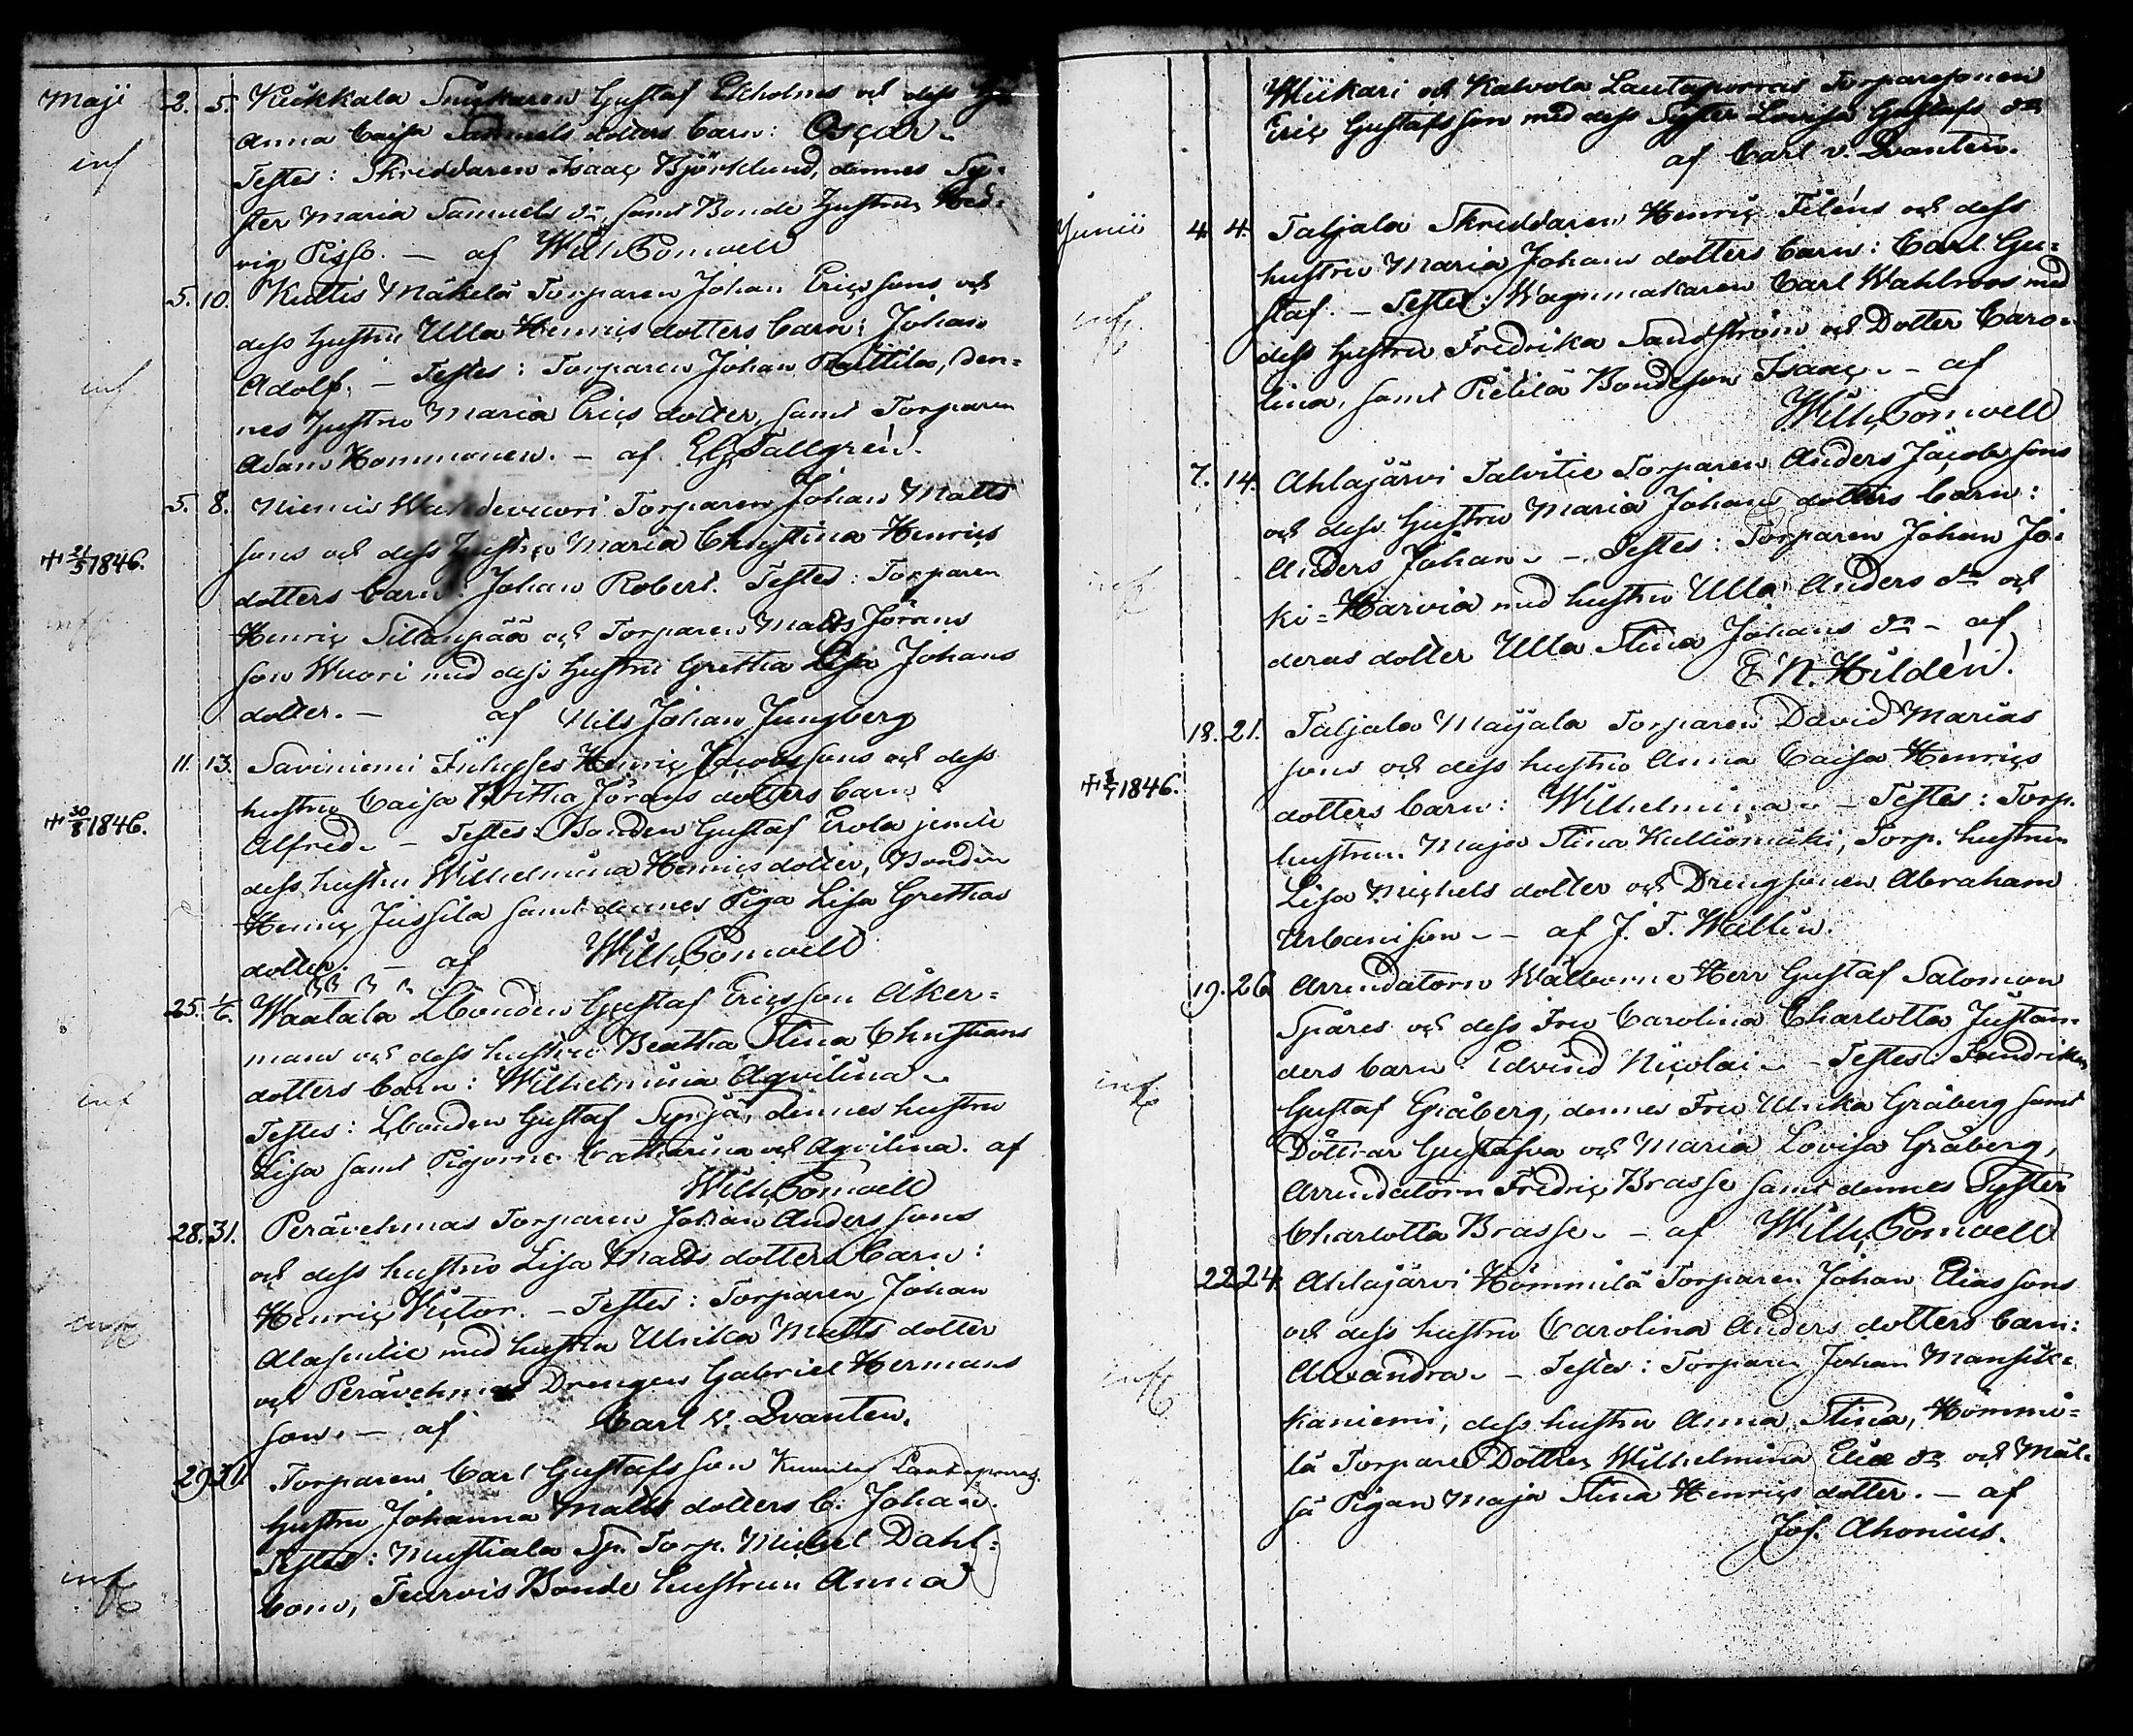 Maji 2. 5. Kukkala Snickaren Gustaf Ekholms och dess
inf Anna Caisa Samuels dotters barn: Oscar.
Testes: Skreddaren Isaac Björklund, dennes Sy-
ster Maria Samuels dr, samt Bonde Hustrun Hed-
vig Pisso. — af Wilh. Bonwell
5. 10. Kultis Mäkelä Torparen Johan Ericssons och
dess hustru Ulla Henrics dotters barn: Johan
inf Adolf. — Testes: Torparen Johan Rasttila, den-
nes hustru Maria Erics dotter, samt Torparen
Adam Hommonen. — af Tallgrén.
5. 8. Niemis Torparen Johan Matts
sons och dess hustru Maria Christina Henrics
+ 21/5 1846. dotters barn: Johan Robert. Testes: Torparen
inf Henric Sillanpää och Torparen Matts Jörans
son Wuori med dess hustru Gretha Lisa Johans
dotter. — af Nils Johan Jungberg
11. 13. Saviniemi Inhyses Henric Jacobssons och dess
hustru Caisa Jörans dotters barn:
+ 30/8 1846. Alfred. — Testes: Bonden Gustaf Erola jemte
dess hustru Wilhelmina Henrics dotter, Bonden
Henric Jussila samt dennes Piga Lisa Grethas
dotter. — af Wilh. Bonwell
25. 1/6. Waatala Lbonden Gustaf Ericsson Åker-
mans och dess hustru Beatha Stina Christians
inf dotters barn: Wilhelmina Aqvilina.
Testes: Lbonden Gustaf Syrjä, dennes hustru
Lisa samt Pigorne Catharina och Aqvilina. af
Wilh. Bonwell
28. 31. Perävehmas Torparen Johan Anderssons
och dess hustru Lisa Matts dotters barn:
Henric Victor. — Testes: Torparen Johan
inf Alasentie med hustru Ulrika Matts dotter
och Perävehmas Drengen Gabriel Hermans
son. — af Carl v. Qvanten.
29. 31. Torparen Carl Gustafsson Lautaporras
hustru Johanna Matts dotters b. Johan.
Testes: Mustiala Sp. Torp. Michel Dahl-
inf bom, Teurois Bonde hustrun Anna
Wiikari och Kalvola Lautaporras Torparesonen
Eric Gustafsson med dess Syster Lovisa Gustafs dr
af Carl v. Qvanten.
Junii 4. 4. Taljala Skreddaren Henric Feléns och dess
hustru Maria Johans dotters barn: Carl Gu-
inf. staf. — Testes: Wagnmakaren Carl Wahlroos med
dess hustru Fredrika Sandström och Dotter Caro-
lina, samt Pietilä Bondeson Isaac. — af
Wilh. Bonwell
7. 14. Ahlajärvi Talvitie Torparen Anders Jacobssons
och dess hustru Maria Johans dotters barn:
inf Anders Johan. — Testes: Torparen Johan Jo-
ki-Harvia med hustru Ulla Anders dr och
deras dotter Ulla Stina Johans dr — af
E. N. Hildén.
18. 21. Taljala Maijala Torparen David Marias
sons och dess hustru Anna Caisa Henrics
+ 1846. dotters barn: Wilhelmina. — Testes: Torp.
hustrun Maja Stina Kulliomäki, Torp. hustrun
Lisa Michels dotter och Drengsonen Abraham
Urbanison. — af J. F. Wallin.
19. 26. Arrendatorn Wälborne Herr Gustaf Salomon
Spåres och dess Fru Carolina Charlotta Justan-
inf ders barn: Edvind Nicolai. — Testes: Fendriken
Gustaf Gråberg, dennes Fru Ulrika Gråberg samt
Döttrar Gustafva och Maria Lovisa Gråberg,
Arrendatorn Fredric Brasse samt dennes Syster
Charlotta Brasse. — af Wilh. Bonwell
22. 24. Ahlajärvi Hömmilä Torparen Johan Eliassons
och dess hustru Carolina Anders dotters barn:
inf Alexandra. — Testes: Torparen Johan Mansik-
kaniemi, dess hustru Anna Stina, Hömmi-
lä Torpare Dotter Wilhelmina Eliæ dr och Mäl-
sä Pigan Maja Stina Henrics dotter. — af
Jos. Ahonius.